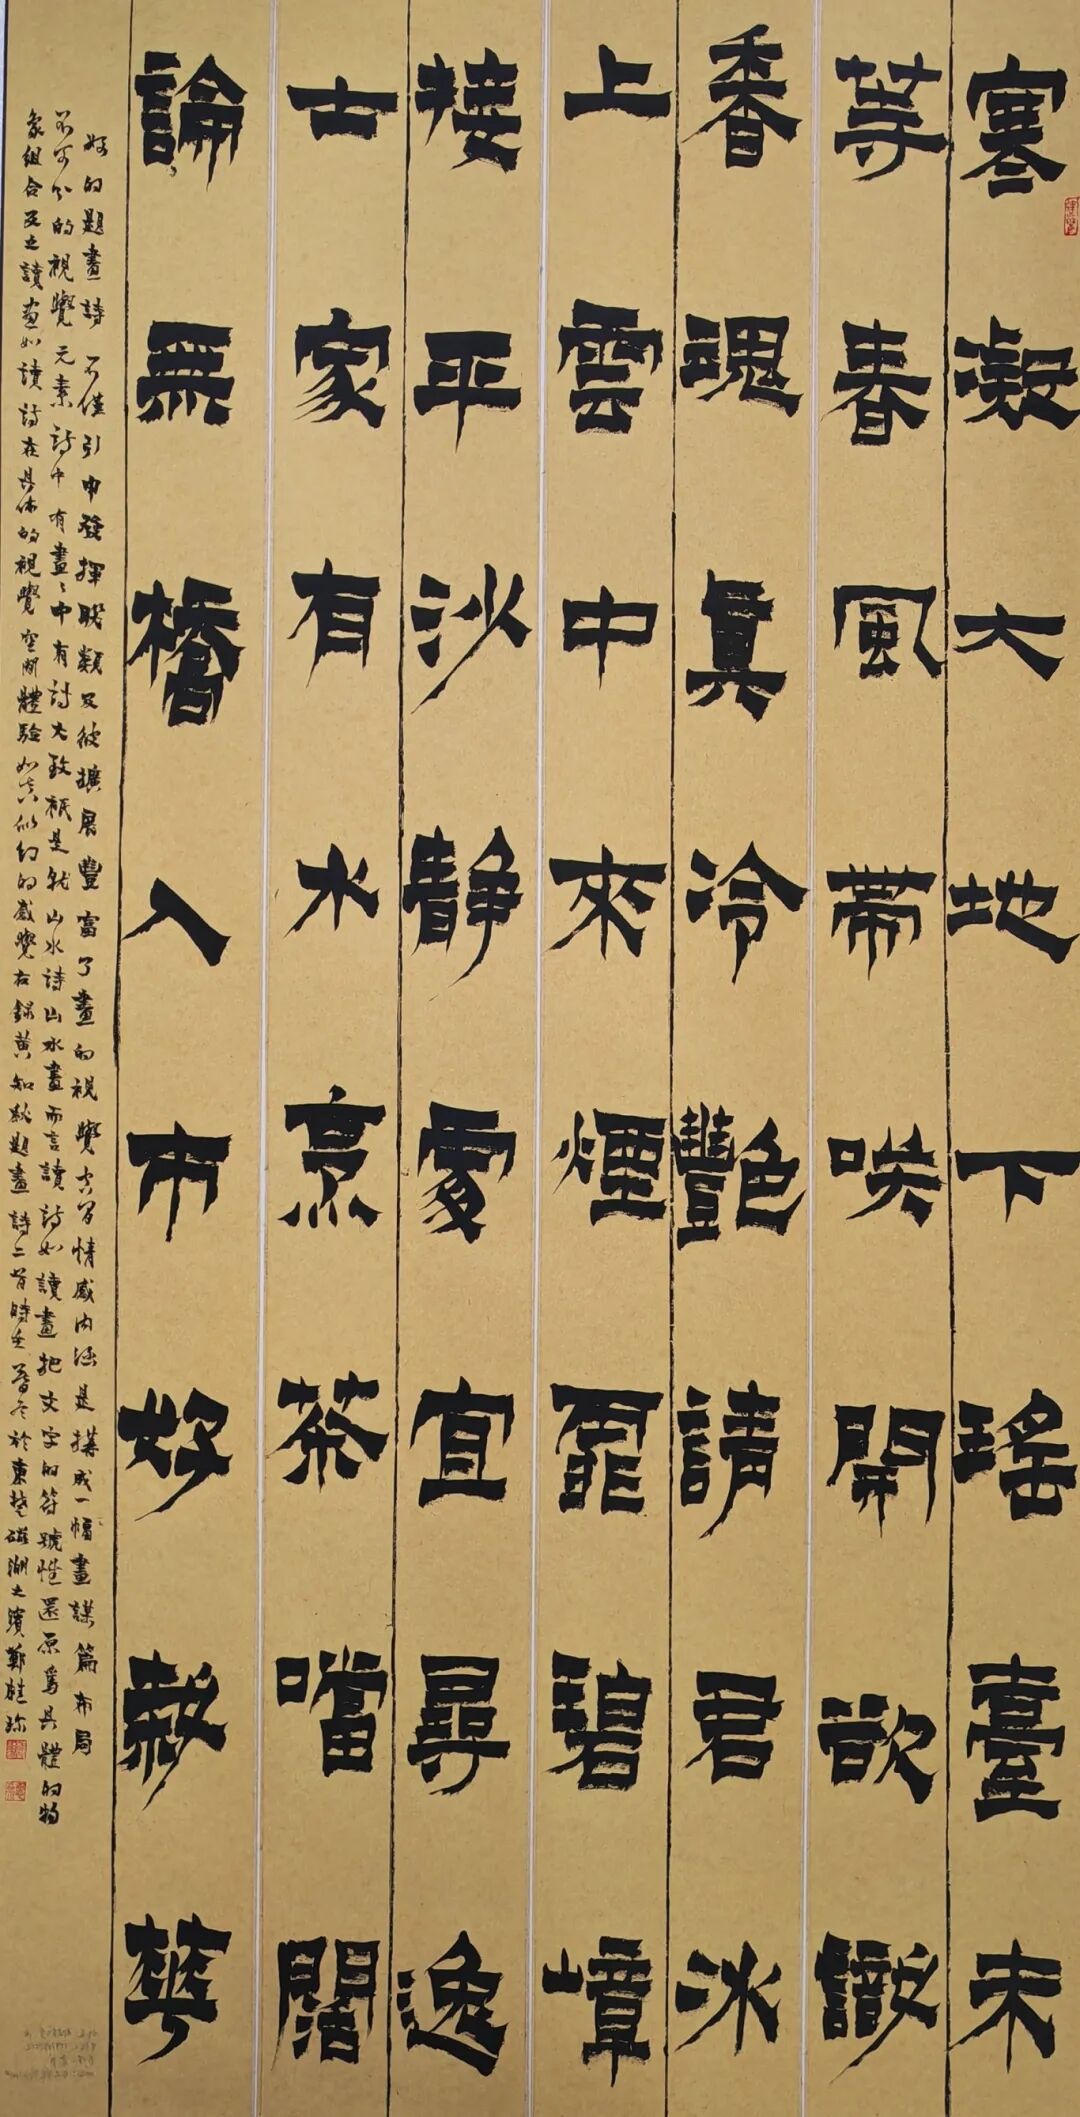 寒凝大地下瑤臺未
等春風帶咲開欲識
香魂眞冷艷請君冰
上雲中來煙霏碧嶂
接平沙靜處宜尋逸
士家有水烹茶噹闊
論無橋入市好華
好的題畫詩不僅引申發揮聯類及彼擴展豐富了畫的視覺空間情感内涵是構成一幅畫謀篇布局
不可分的視覺元素詩中有畫〻中有詩大致衹是就山水詩山水畫而言讀詩如讀畫把文字的符號性還原爲具體的物
象組合反之讀畫如讀詩在具体的視覺空間體驗如真似幻的感覺右錄黄知秋題畫詩二首時壬寅冬於東楚磁湖之濱鄭